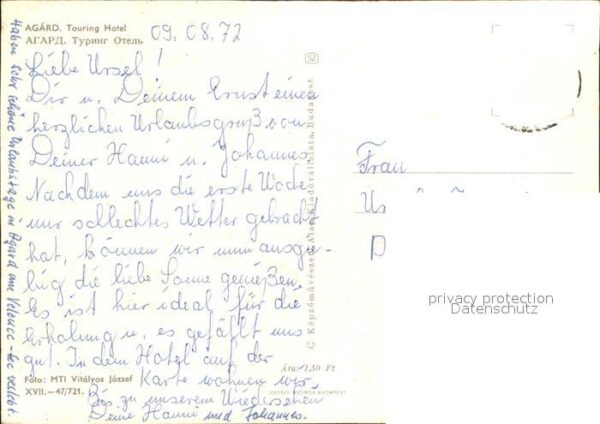 AGÁRD. Touring Hotel
АГАРД. Туринг Отель
09.08.72
Liebe Ursel!
Dir u. Deinem Ernst einen
herzlichen Urlaubsgruß von
Deiner Hanni u. Johannes.
Nachdem uns die erste Woche
nur schlechtes Wetter gebracht
hat, können wir nun ausgie-
big die liebe Sonne genießen.
Es ist hier ideal für die
Erholung u. es gefällt uns
gut. In dem Hotel auf der
Karte wohnen wir.
Bis zu unserem Wiedersehen
Deine Hanni und Johannes.
Haben sehr schöne Urlaubstage in Agard am Velence-See verlebt.
Foto: MTI Vitályos József
XVII.—47/721.
© Képzőművészeti Alap Kiadóvállalata, Budapest
Ára: 1,50 Ft
OFFSET NYOMDA BUDAPEST
Frau
privacy protection
Datenschutz